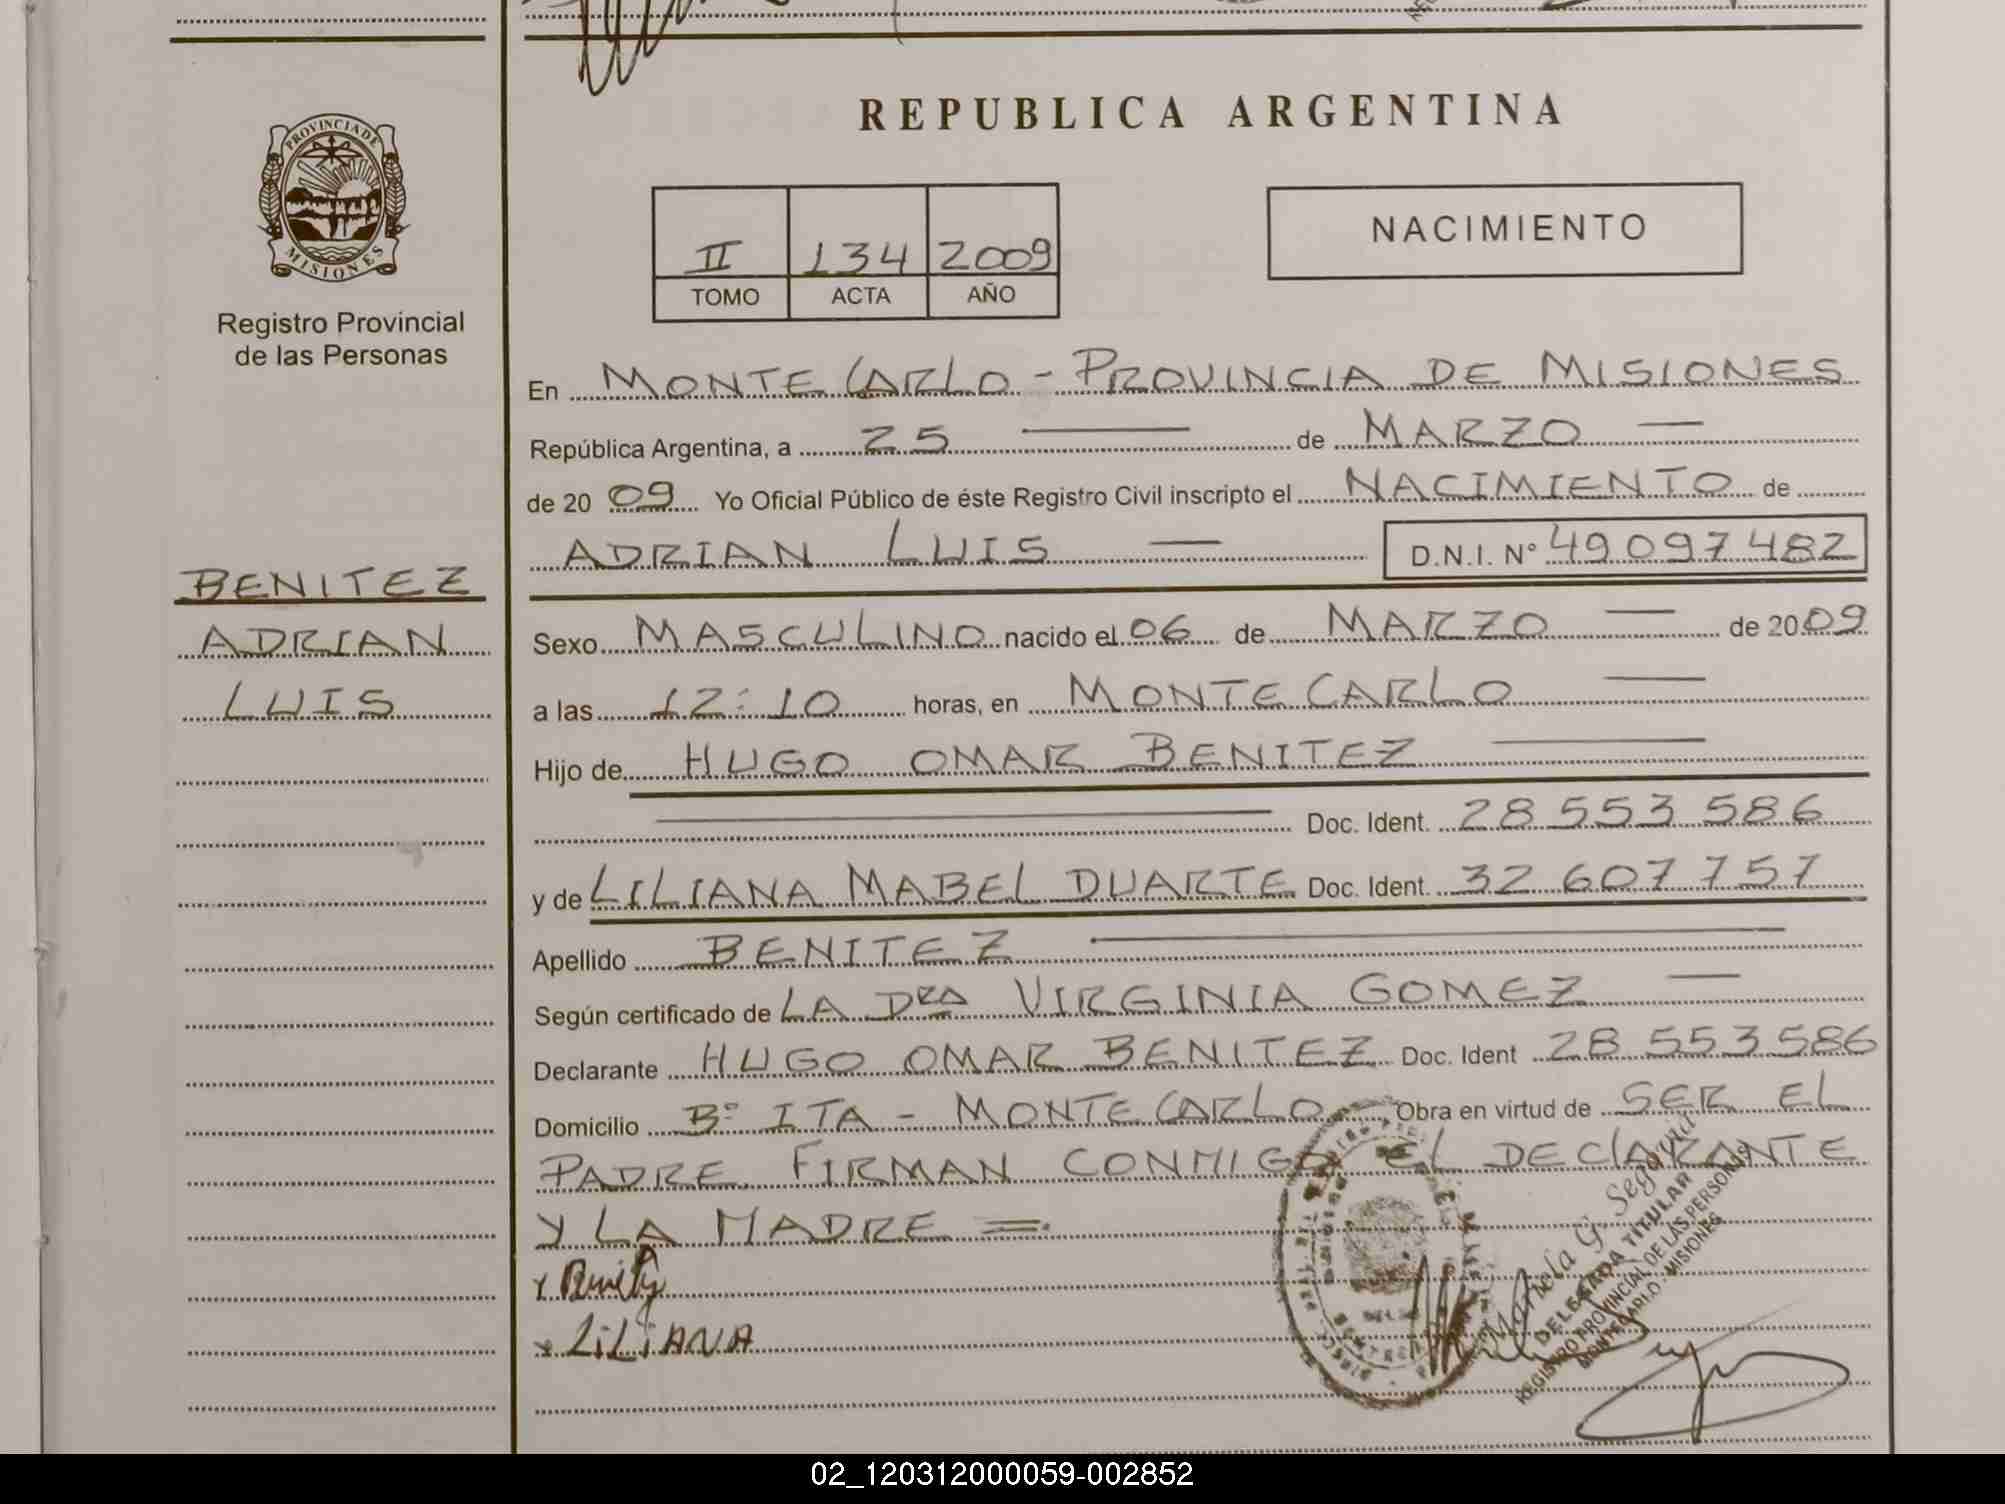 REPUBLICA ARGENTINA
PROVINCIA DE
MISIONES
Registro Provincial
de las Personas
II 134 2009
TOMO ACTA AÑO
NACIMIENTO
En MONTECARLO - PROVINCIA DE MISIONES
República Argentina, a 25 de MARZO
de 2009 Yo Oficial Público de éste Registro Civil inscripto el NACIMIENTO de
ADRIAN LUIS D.N.I. Nº 49 097 482
BENITEZ
ADRIAN
LUIS
Sexo MASCULINO nacido el 06 de MARZO de 2009
a las 12:10 horas, en MONTECARLO
Hijo de HUGO OMAR BENITEZ
Doc. Ident. 28 553 586
y de LILIANA MABEL DUARTE Doc. Ident. 32 607 757
Apellido BENITEZ
Según certificado de LA DRA VIRGINIA GOMEZ
Declarante HUGO OMAR BENITEZ Doc. Ident 28 553 586
Domicilio Bº ITA - MONTECARLO Obra en virtud de SER EL
PADRE. FIRMAN CONMIGO EL DECLARANTE
Y LA MADRE =.
LiLiANA
Mariela G. Segovia
DELEGADA TITULAR
REGISTRO PROVINCIAL DE LAS PERSONAS
MONTECARLO - MISIONES
02_120312000059-002852